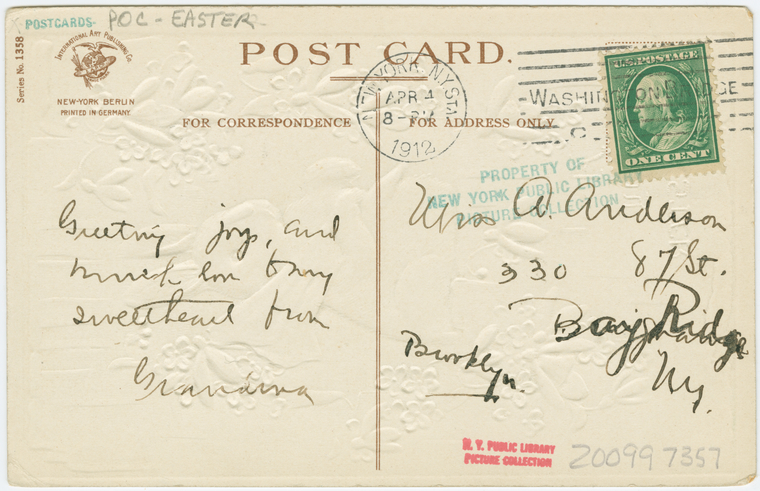 POSTCARDS-
POC - EASTER
Series No. 1358
INTERNATIONAL ART PUBLISHING CO.
NEW-YORK BERLIN
PRINTED IN GERMANY
POST CARD.
NEW YORK, N.Y. STA.
APR 4
8-P
1912
WASHINGTON BRIDGE
U.S. POSTAGE
ONE CENT
FOR CORRESPONDENCE
FOR ADDRESS ONLY
PROPERTY OF
NEW YORK PUBLIC LIBRARY
PICTURE COLLECTION
Greeting joy, and
much love to my
sweetheart from
Grandma
Miss A. Anderson
330 87 St.
Bay Ridge
Brooklyn
Ny.
N. Y. PUBLIC LIBRARY
PICTURE COLLECTION
200997357